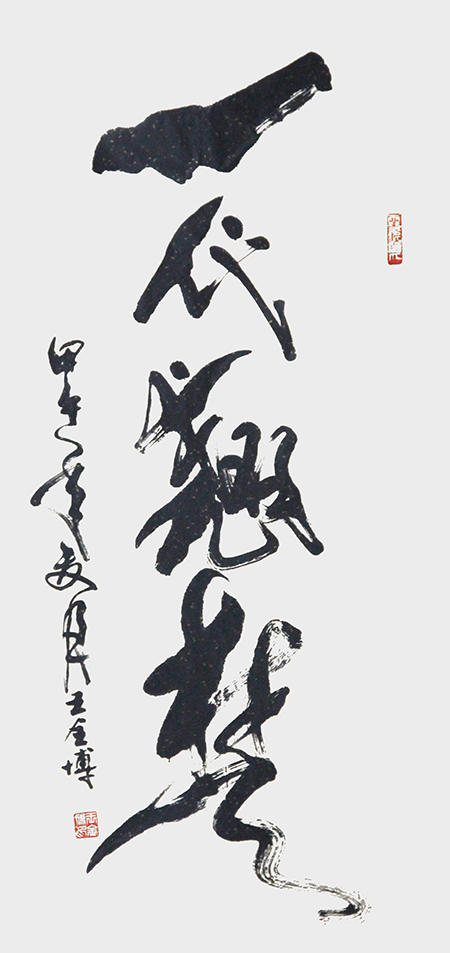 一代翘楚
甲午年夏月王金博